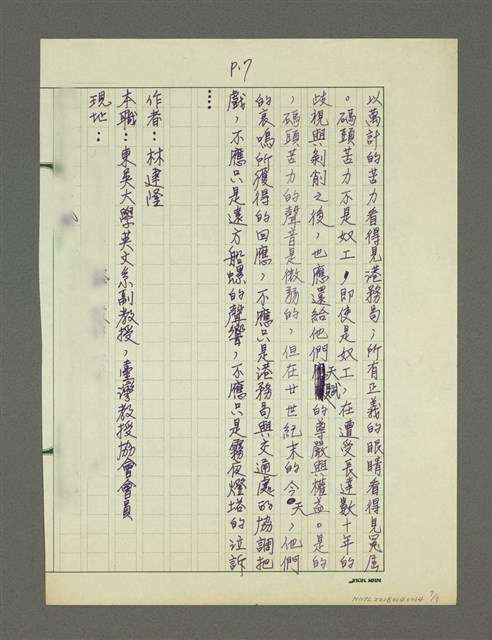 P.7
以萬計的苦力看得見港務局，所有正義的眼睛看得見冤屈
。碼頭苦力不是奴工，即使是奴工，在遭受長達數十年的
歧視與剝削之後，也應還給他們天賦的尊嚴與權益。是的
，碼頭苦力的聲音是微弱的，但在廿世紀末的今天，他們
的哀鳴所獲得的回應，不應只是港務局與交通處的協調把
戲，不應只是遠方船螺的聲響，不應只是霧夜燈塔的泣訴
……
作者：林建隆
本職：東吳大學英文系副教授，臺灣教授協會會員
現地：
NMTL20180040014 7/7